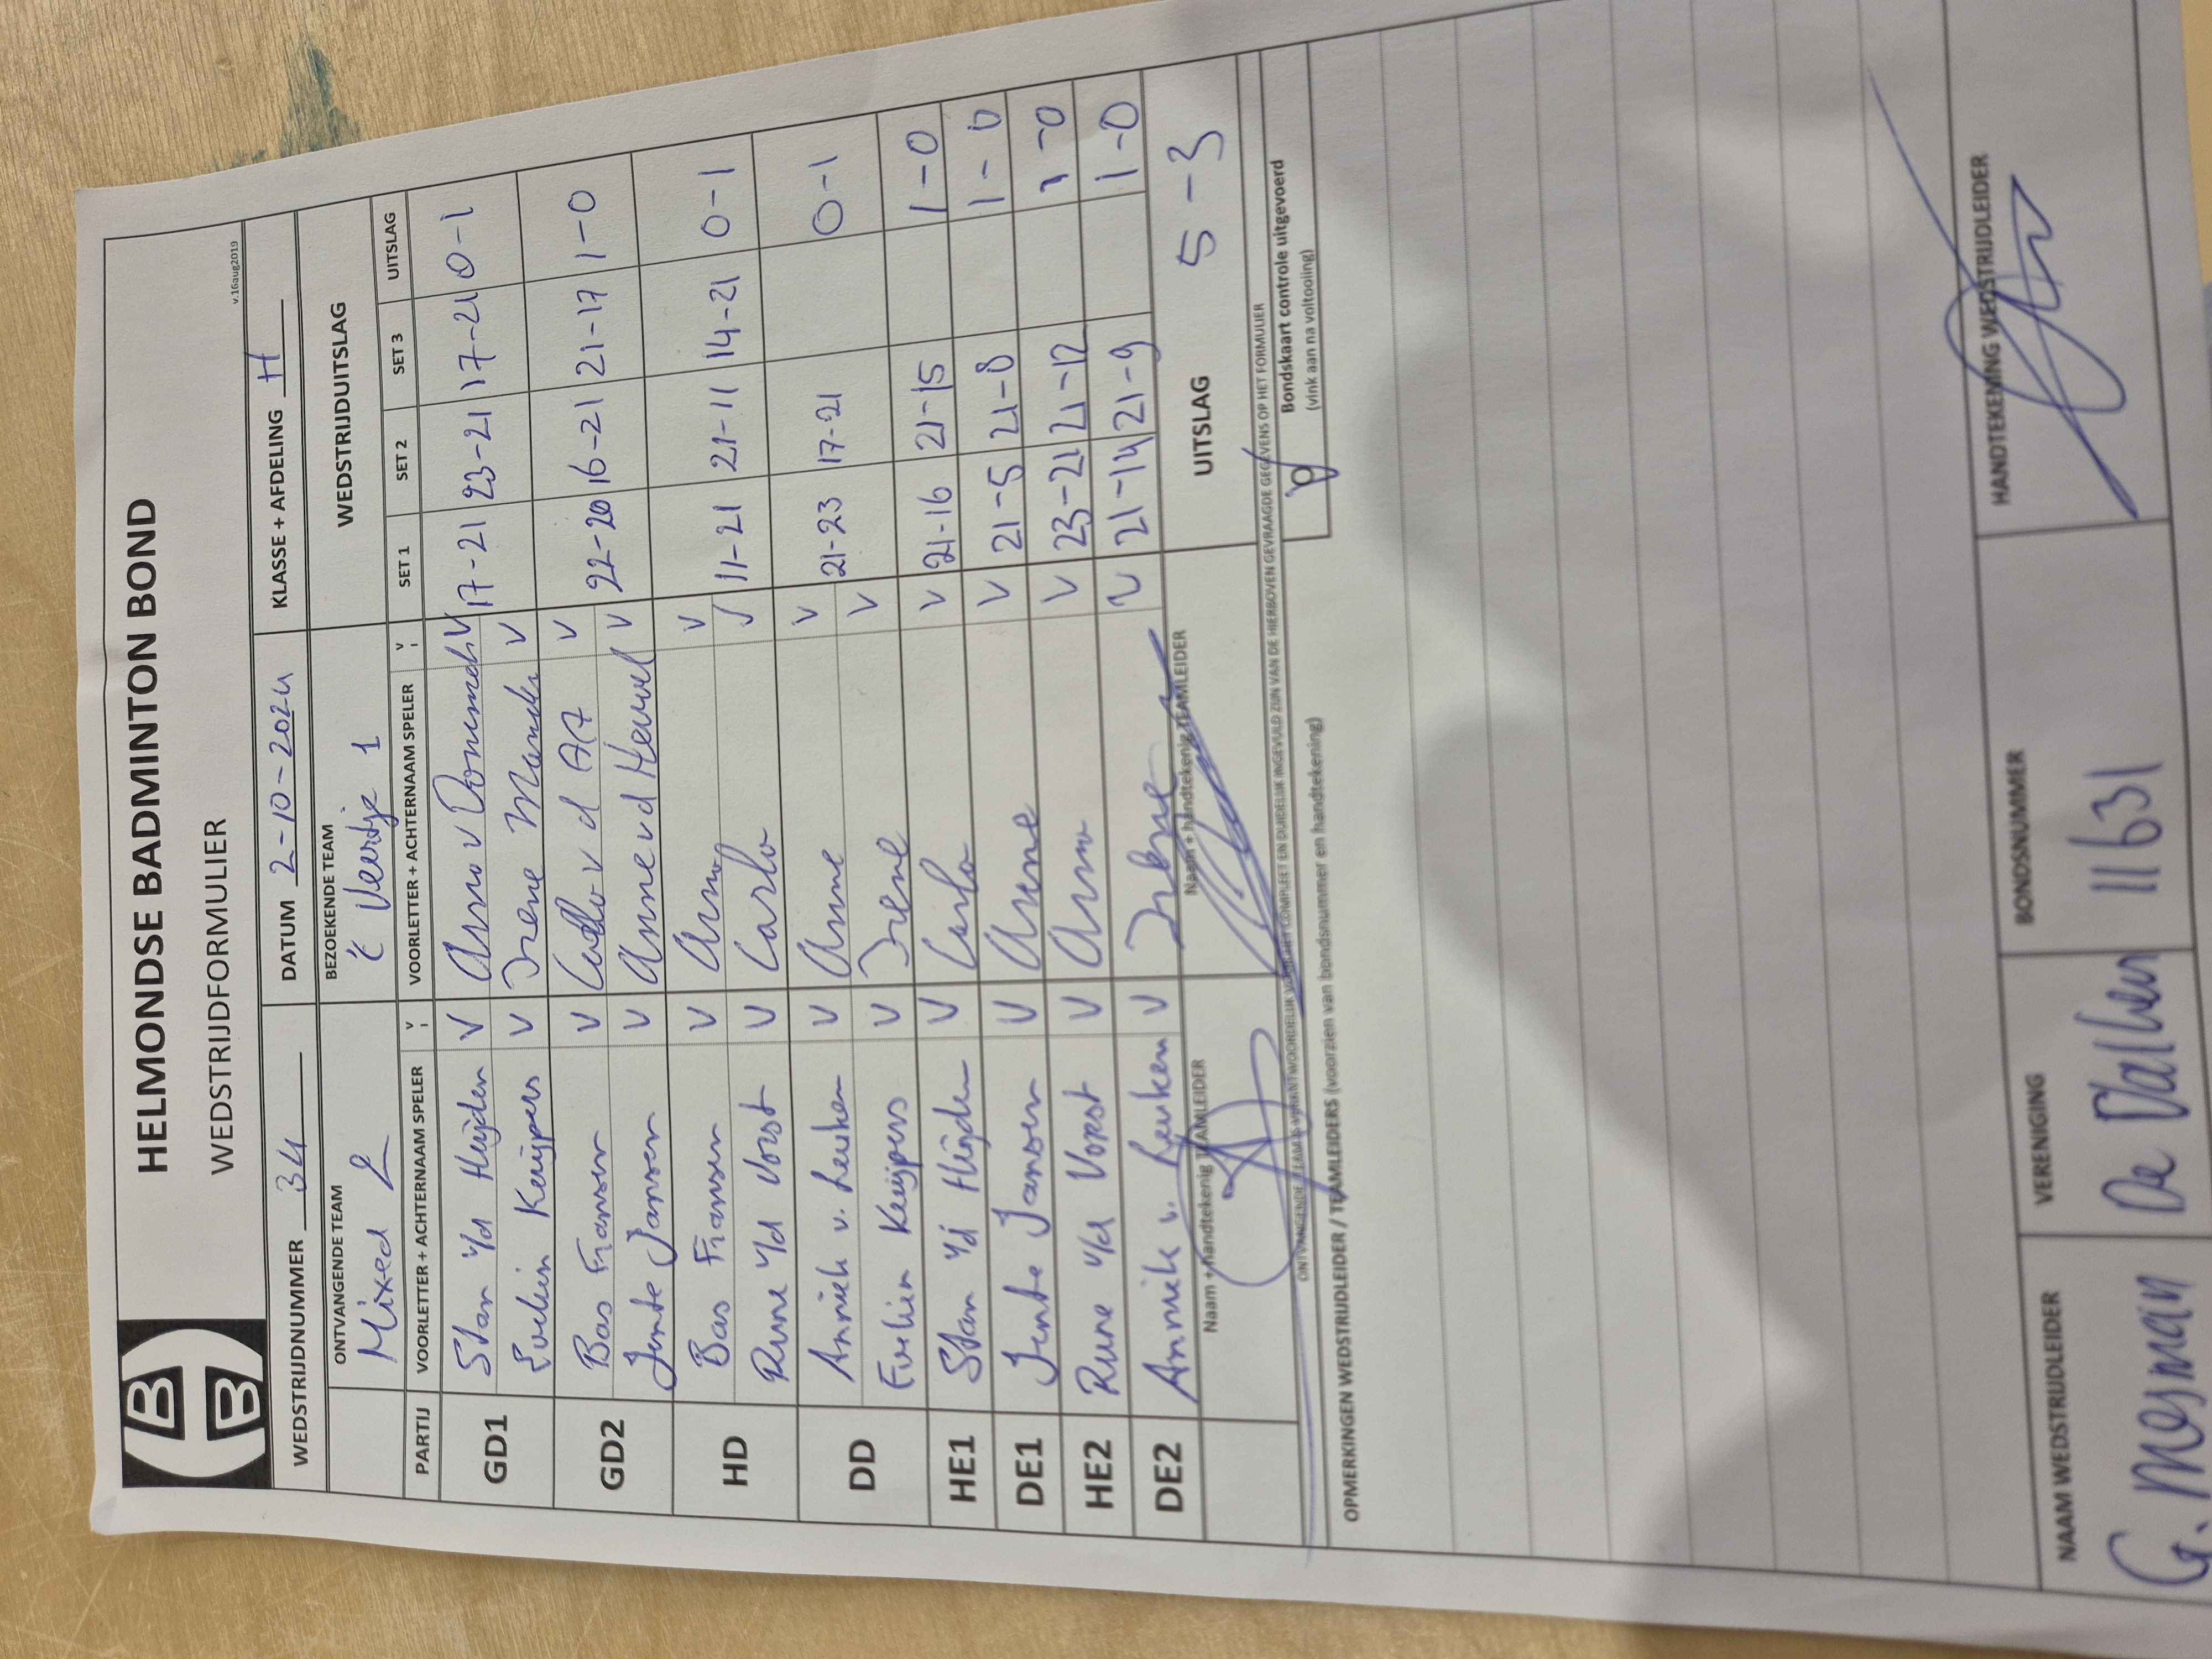 HBB
HELMONDSE BADMINTON BOND
WEDSTRIJDFORMULIER
v.16aug2019
WEDSTRIJDNUMMER 34 DATUM 2-10-2024 KLASSE + AFDELING H
ONTVANGENDE TEAM BEZOEKENDE TEAM WEDSTRIJDUITSLAG
Mixed 2 't Veertje 1
PARTIJ VOORLETTER + ACHTERNAAM SPELER V VOORLETTER + ACHTERNAAM SPELER V SET 1 SET 2 SET 3 UITSLAG
GD1 Stan v/d Heijden V Arno v V 17-21 23-21 17-21 0-1
Evelien Keijpers V Irene Manders V
GD2 Bas Fransen V Carlo v d AA V 22-20 16-21 21-17 1-0
Jente Jansen V Anne vd Heuvel V
HD Bas Fransen V Arno V 11-21 21-11 14-21 0-1
Rune v/d Vorst V Carlo V
DD Anniek v. Leuken V Anne V 21-23 17-21 0-1
Evelien Keijpers V Irene V
HE1 Stan v/d Heijden V Carlo V 21-16 21-15 1-0
DE1 Jente Jansen V Anne V 21-5 21-8 1-0
HE2 Rune v/d Vorst V Arno V 23-21 21-12 1-0
DE2 Anniek v. Leuken V Irene V 21-14 21-9 1-0
Naam + handtekenig TEAMLEIDER Naam + handtekenig TEAMLEIDER UITSLAG 5-3
ONTVANGENDE TEAM IS VERANTWOORDELIJK VOOR HET COMPLEET EN DUIDELIJK INGEVULD ZIJN VAN DE HIERBOVEN GEVRAAGDE GEGEVENS OP HET FORMULIER
Bondskaart controle uitgevoerd
(vink aan na voltooiing)
OPMERKINGEN WEDSTRIJDLEIDER / TEAMLEIDERS (voorzien van bondsnummer en handtekening)
NAAM WEDSTRIJDLEIDER VERENIGING BONDSNUMMER HANDTEKENING WEDSTRIJDLEIDER
G. Mesman De 11631